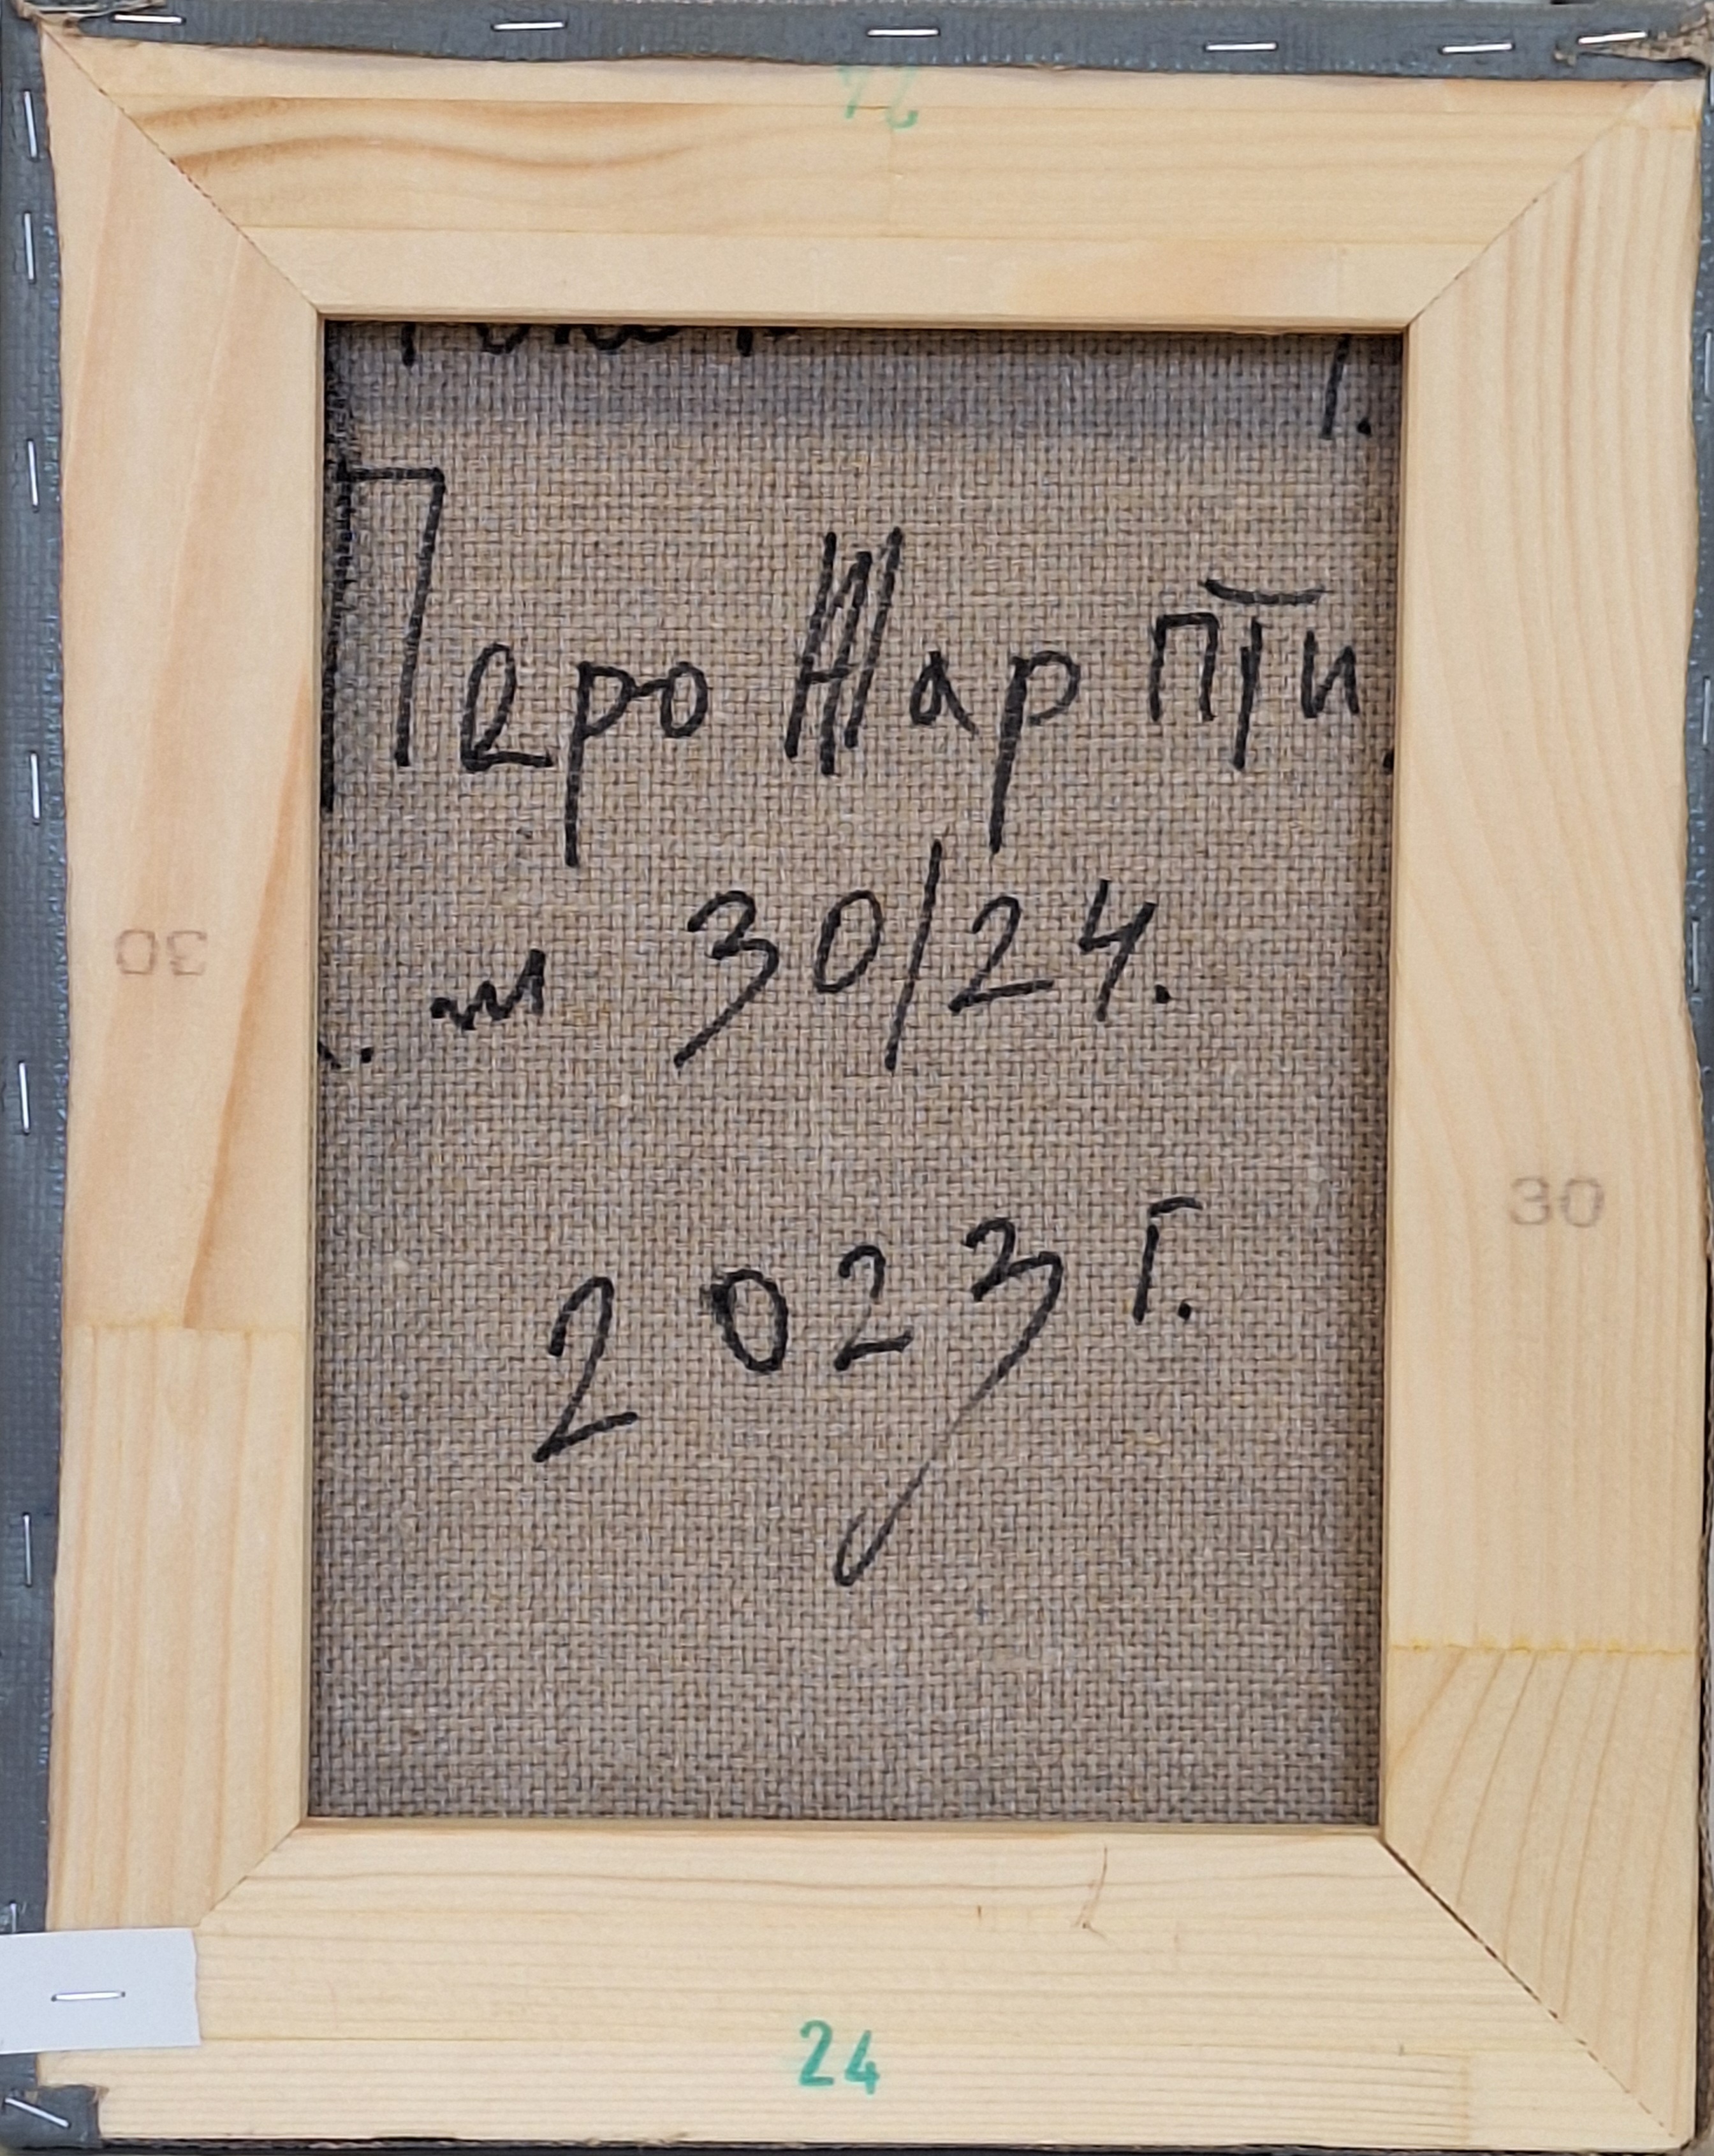 Перо Жар пти
.м 30/24.
2023 г.
30
30
24
24